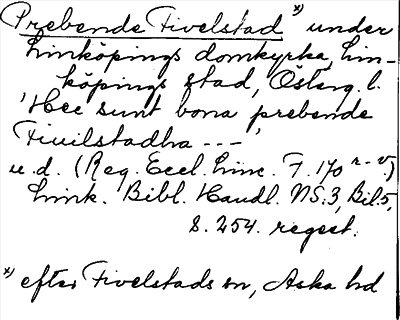 Prebende Fivelstad x) under
Linköpings domkyrka, Lin-
köpings stad, Österg. l.
'Hec sunt bona prebende
Fiuilstadha ---'
u.d. (Reg. Eccl. Linc. F. 170 r-v.)
Link. Bibl. Handl. NS:3, Bil.5,
S. 254. regest.
x) efter Fivelstads sn, Aska hd